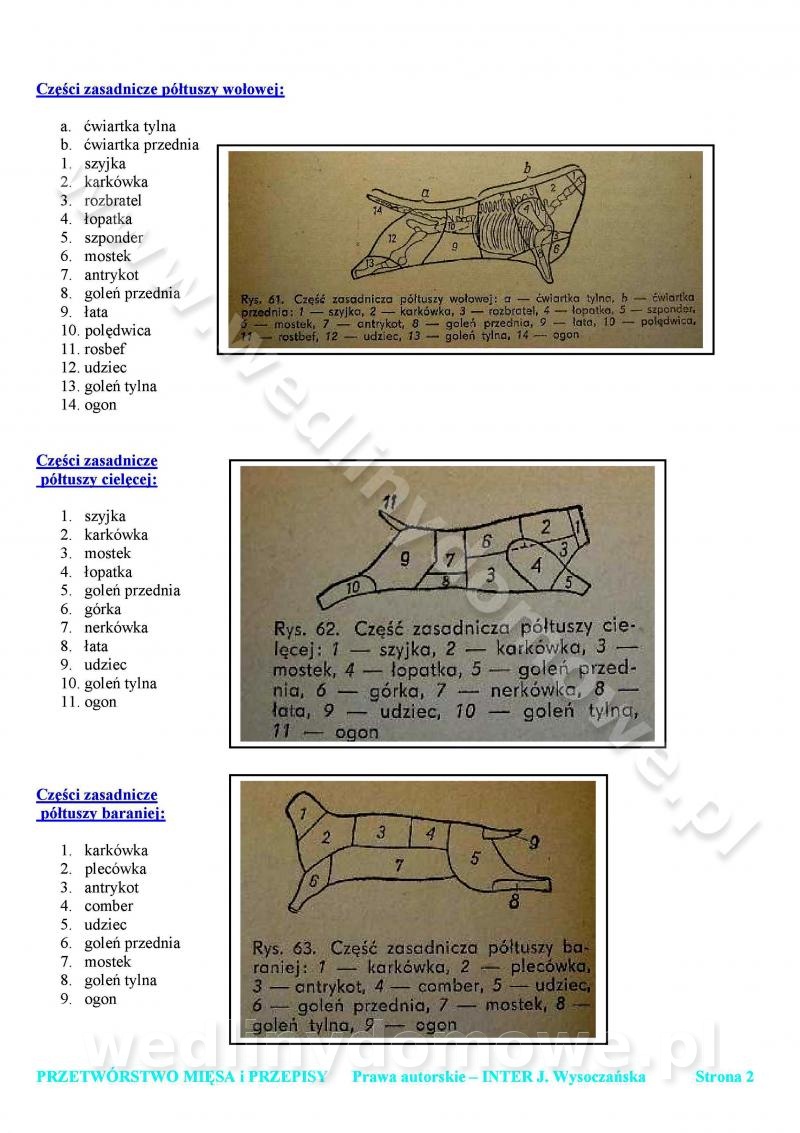 Części zasadnicze półtuszy wołowej:
a. ćwiartka tylna
b. ćwiartka przednia
1. szyjka
2. karkówka
3. rozbratel
4. łopatka
5. szponder
6. mostek
7. antrykot
8. goleń przednia
9. łata
10. polędwica
11. rosbef
12. udziec
13. goleń tylna
14. ogon
a
b
14
12
13
11
10
9
3
2
1
4
8
5
6
Rys. 61. Część zasadnicza półtuszy wołowej: a — ćwiartka tylna, b — ćwiartka
przednia: 1 — szyjka, 2 — karkówka, 3 — rozbratel, 4 — łopatka, 5 — szponder,
6 — mostek, 7 — antrykot, 8 — goleń przednia, 9 — łata, 10 — polędwica,
11 — rostbef, 12 — udziec, 13 — goleń tylna, 14 — ogon
Części zasadnicze
półtuszy cielęcej:
1. szyjka
2. karkówka
3. mostek
4. łopatka
5. goleń przednia
6. górka
7. nerkówka
8. łata
9. udziec
10. goleń tylna
11. ogon
11
10
9
7
8
6
3
2
1
3
4
5
Rys. 62. Część zasadnicza półtuszy cie-
lęcej: 1 — szyjka, 2 — karkówka, 3 —
mostek, 4 — łopatka, 5 — goleń przed-
nia, 6 — górka, 7 — nerkówka, 8 —
łata, 9 — udziec, 10 — goleń tylna,
11 — ogon
Części zasadnicze
półtuszy baraniej:
1. karkówka
2. plecówka
3. antrykot
4. comber
5. udziec
6. goleń przednia
7. mostek
8. goleń tylna
9. ogon
1
2
3
4
5
6
7
8
9
Rys. 63. Część zasadnicza półtuszy ba-
raniej: 1 — karkówka, 2 — plecówka,
3 — antrykot, 4 — comber, 5 — udziec,
6 — goleń przednia, 7 — mostek, 8 —
goleń tylna, 9 — ogon
www.wedlinydomowe.pl
wedlinydomowe.pl
PRZETWÓRSTWO MIĘSA i PRZEPISY Prawa autorskie – INTER J. Wysoczańska Strona 2